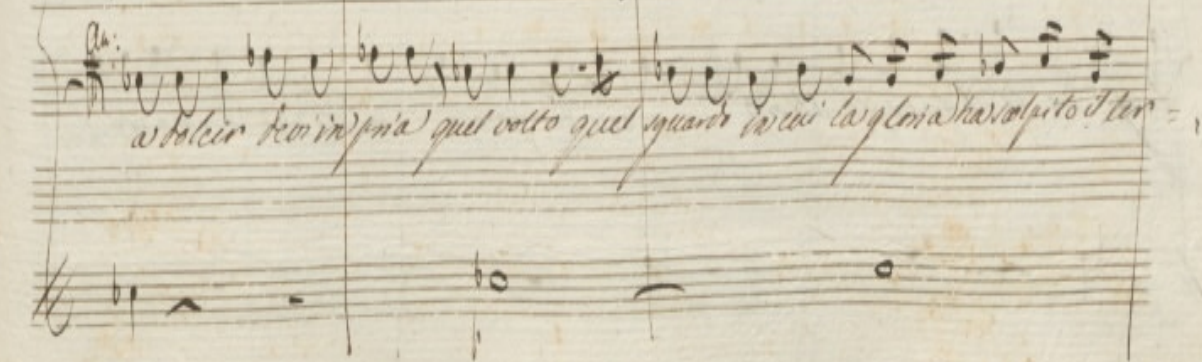 An:
a dolcir devi in pria quel volto quel sguardo in cui la gloria ha scolpito il ter=